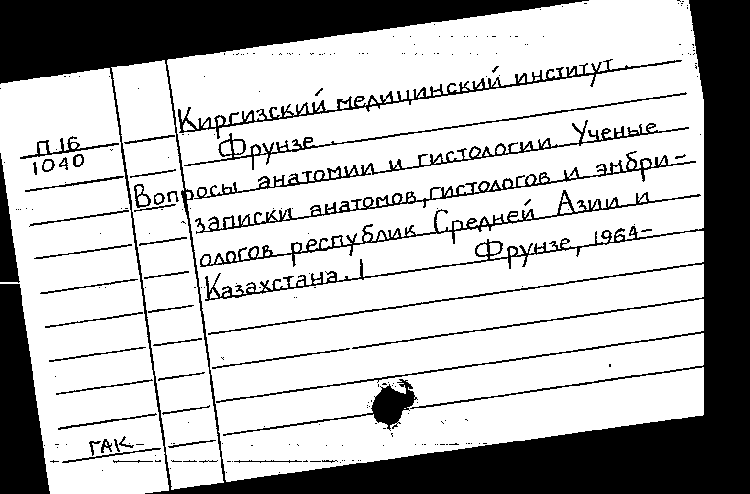 Киргизский медицинский институт.
П 16
1040
Фрунзе.
Вопросы анатомии и гистологии. Ученые
записки анатомов, гистологов и эмбри-
ологов республик Средней Азии и
Казахстана. 1 Фрунзе, 1964-
ГАК-